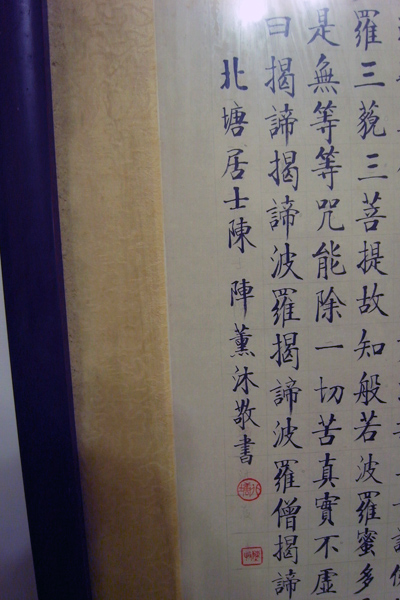 羅三藐三菩提故知般若波羅蜜多
是無等等咒能除一切苦真實不虛
曰揭諦揭諦波羅揭諦波羅僧揭諦
北塘居士陳 陣薰沐敬書